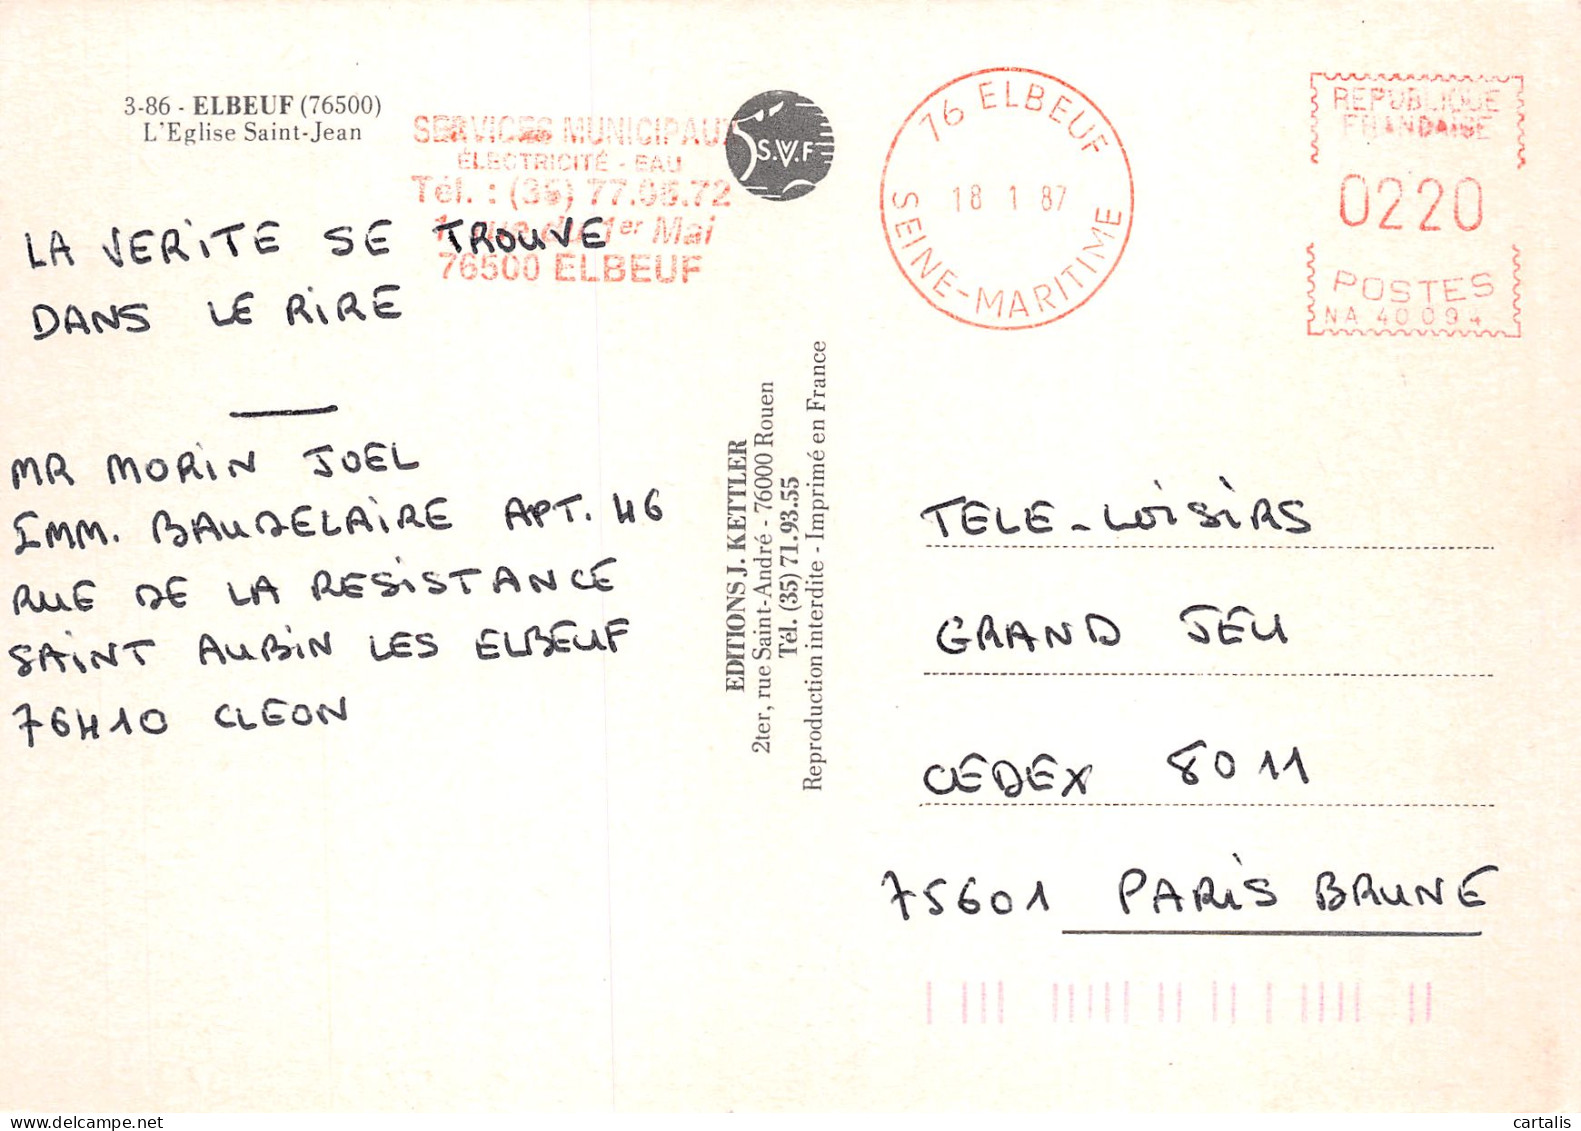 3-86 - ELBEUF (76500)
L'Eglise Saint-Jean
SERVICES MUNICIPAUX
ÉLECTRICITÉ - EAU
Tél. : (35) 77.06.72
1, rue du 1er Mai
76500 ELBEUF
S.V.F
76 ELBEUF
18 1 87
SEINE-MARITIME
REPUBLIQUE
FRANÇAISE
0220
POSTES
NA 40094
LA VERITE SE TROUVE
DANS LE RIRE
MR MORIN JOEL
IMM. BAUDELAIRE APT. 46
RUE DE LA RESISTANCE
SAINT AUBIN LES ELBEUF
76410 CLEON
EDITIONS J. KETTLER
2ter, rue Saint-André - 76000 Rouen
Tél. (35) 71.93.55
Reproduction interdite - Imprimé en France
TELE-LOISIRS
GRAND JEU
CEDEX 8011
75601 PARIS BRUNE
cartalis